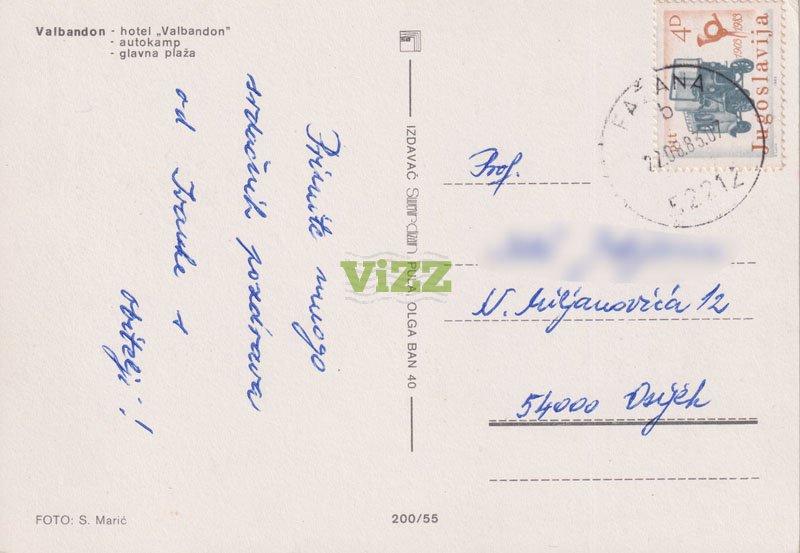 Valbandon - hotel „Valbandon”
- autokamp
- glavna plaža
Primite mnogo
srdačnih pozdrava
od Ivanke s
obitelji!
IZDAVAČ PULA, OLGA BAN 40
ViZZ
4 D
1903/1983
Jugoslavija
Ptt
FAŽANA
b
27.08.83.07
52212
Prof.
N. Miljanovića 12
54000 Osijek
FOTO: S. Marić
200/55